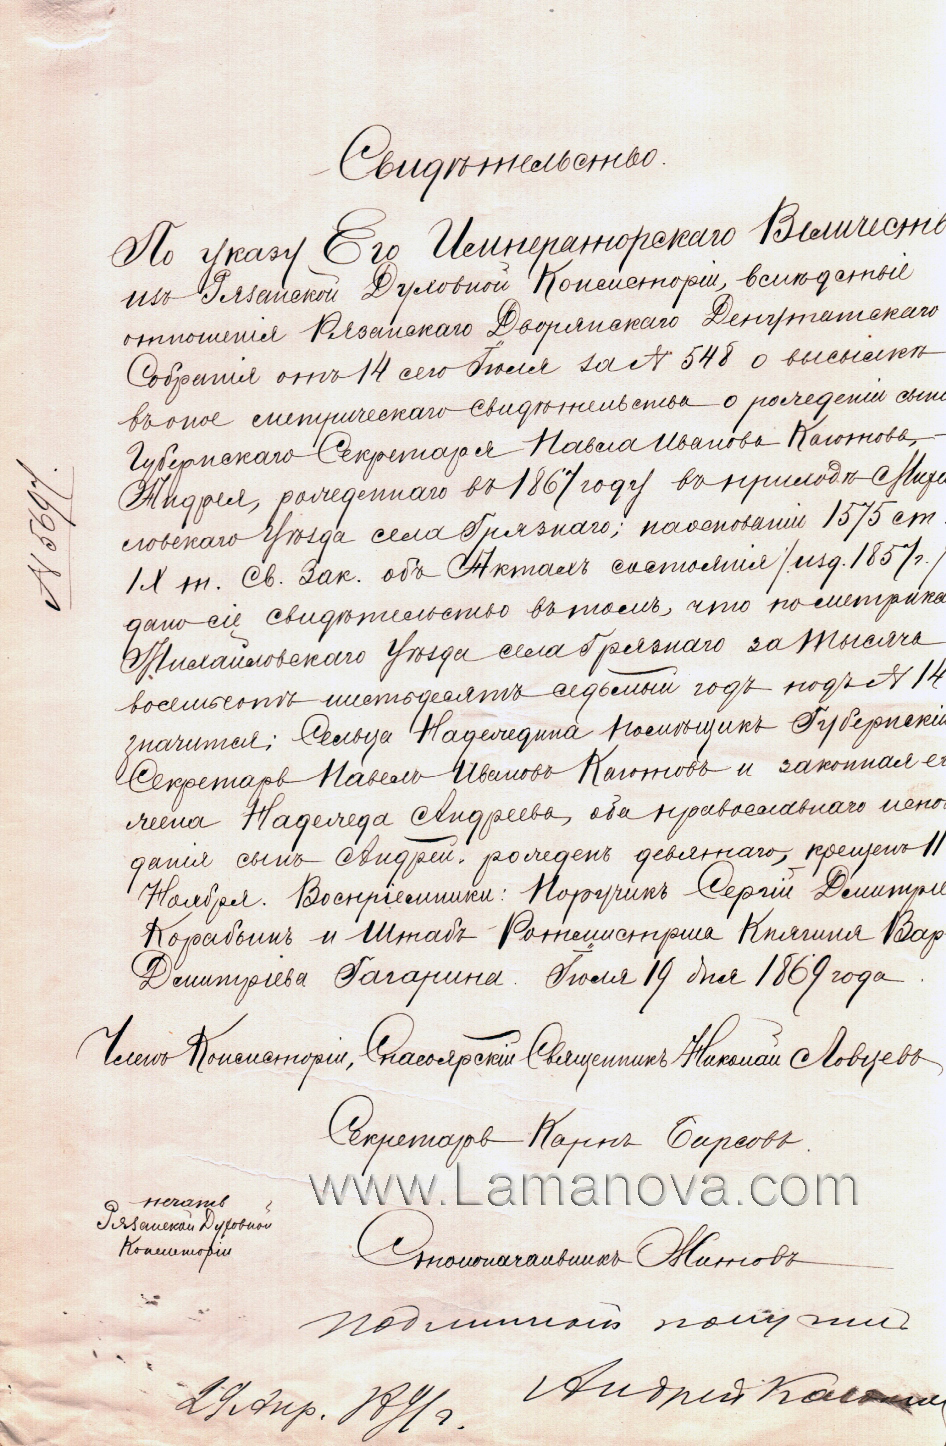 Свидѣтельство.
По указу Его Императорскаго Величеств
изъ Рязанской Духовной Консисторіи, вслѣдствіе
отношенія Рязанскаго Дворянскаго Депутатскаго
Собранія отъ 14 сего Іюля за № 548 о высылкѣ
въ оное метрическаго свидѣтельства о рожденіи сына
Губернскаго Секретаря Павла Иванова Каютова, –
Андрея, рожденнаго въ 1867 году въ приходѣ Миха
ловскаго Уѣзда села Грязнаго; на основаніи 1575 ст.
IX т. Св. Зак. объ Актахъ состоянія /изд. 1857 г./
дано сіе свидѣтельство въ томъ, что по метрика
Михайловскаго Уѣзда села Грязнаго за тысяча
восемьсотъ шестьдесятъ седьмый годъ подъ № 14
значится: Сельца Надеждина помѣщикъ Губернскій
Секретарь Павелъ Ивановъ Каютовъ и законная ег
жена Надежда Андреева, оба православнаго испов
данія сынъ Андрей. рожденъ девятаго, крещенъ 11
Ноября. Воспріемники: Поручикъ Сергій Дмитріе
Корабьинъ и Штабъ Ротмистрша Княгиня Вар
Дмитріева Гагарина. Іюля 19 дня 1869 года.
№ 5697.
Членъ Консисторіи, Спасоярскій Священникъ Николай Ловцевъ
Секретарь Карпъ Бирсовъ.
www.Lamanova.com
печать
Рязанской Духовной
Консисторіи
Столоначальникъ Житовъ
Подлинной получил
Андрей Каютов
29 Апр. г.